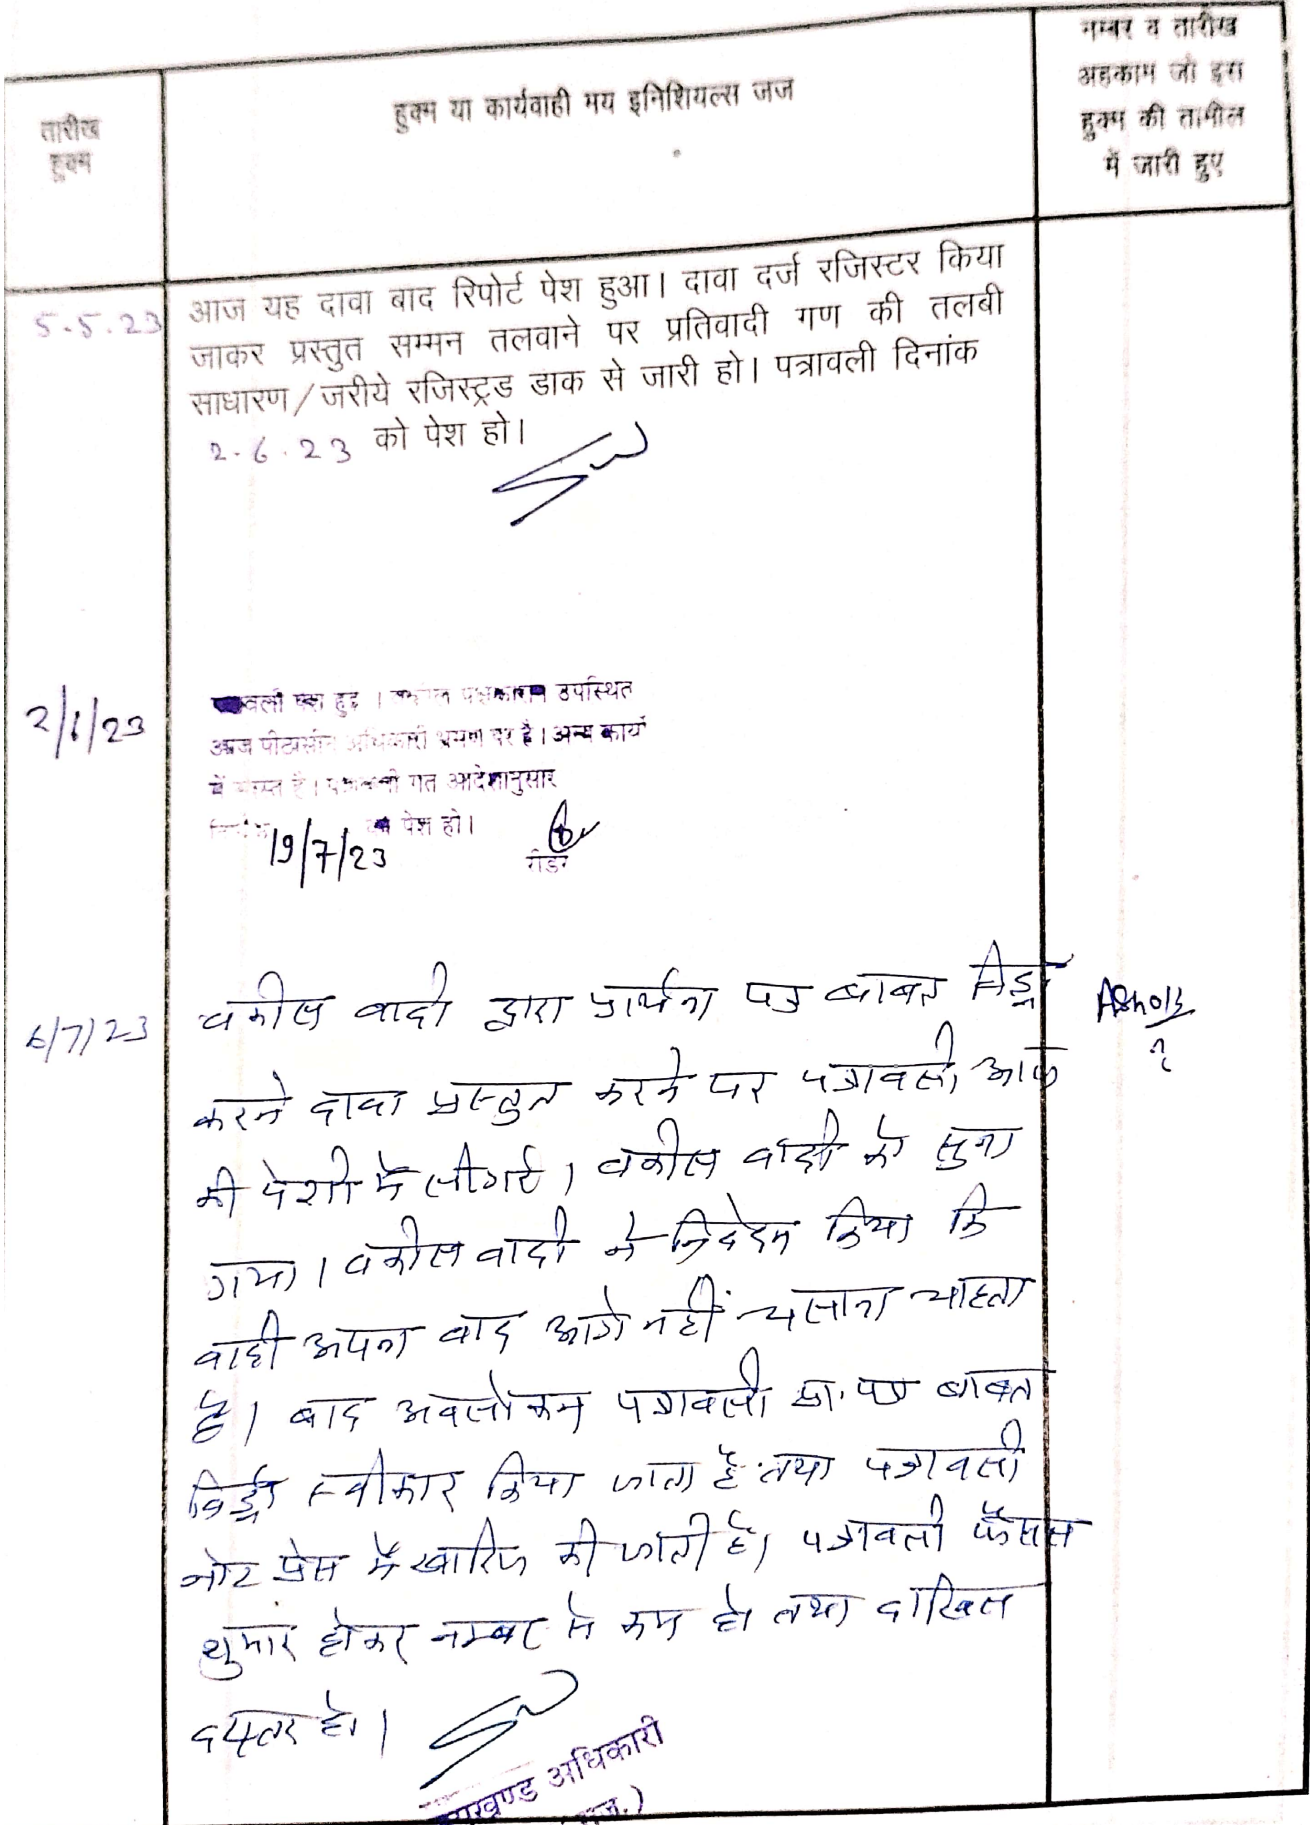 नम्बर व तारीख
अहकाम जो इस
हुक्म की तामील
में जारी हुए
हुक्म या कार्यवाही मय इनिशियल्स जज
तारीख
हुक्म
5.5.23
आज यह दावा बाद रिपोर्ट पेश हुआ। दावा दर्ज रजिस्टर किया
जाकर प्रस्तुत सम्मन तलवाने पर प्रतिवादी गण की तलबी
साधारण/जरीये रजिस्ट्रड डाक से जारी हो। पत्रावली दिनांक
2.6.23 को पेश हो।
2/6/23
उपस्थित
आज पीठासीन अधिकारी भ्रमण पर है। अन्य कार्यों
में व्यस्त है। पत्रावली गत आदेशानुसार
19/7/23 को पेश हो।
रीडर
6/7/23
वकील वादी द्वारा प्रार्थना पत्र बाबत विड्रो
करने दावा प्रस्तुत करने पर पत्रावली आज
की पेशी में ली गई। वकील वादी को सुना
गया। वकील वादी ने निवेदन किया कि
वादी अपना वाद आगे नहीं चलाना चाहता
है। बाद अवलोकन पत्रावली प्रा. पत्र बाबत
विड्रो स्वीकार किया जाता है तथा पत्रावली
नोट प्रेस में खारिज की जाती है। पत्रावली फैसल
शुमार होकर नम्बर से कम हो तथा दाखिल
दफ्तर हो।
Ashok
उपखण्ड अधिकारी